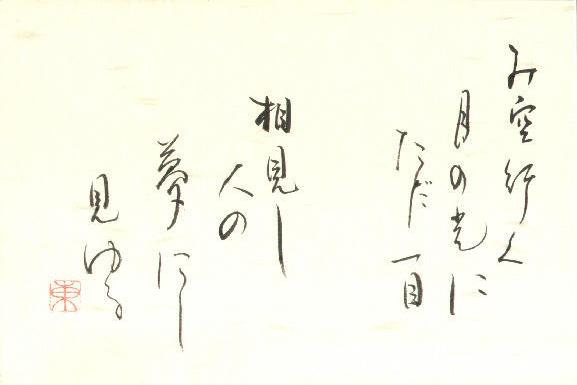 み空行く
月の光に
ただ一目
相見し
人の
夢にし
見ゆる
東